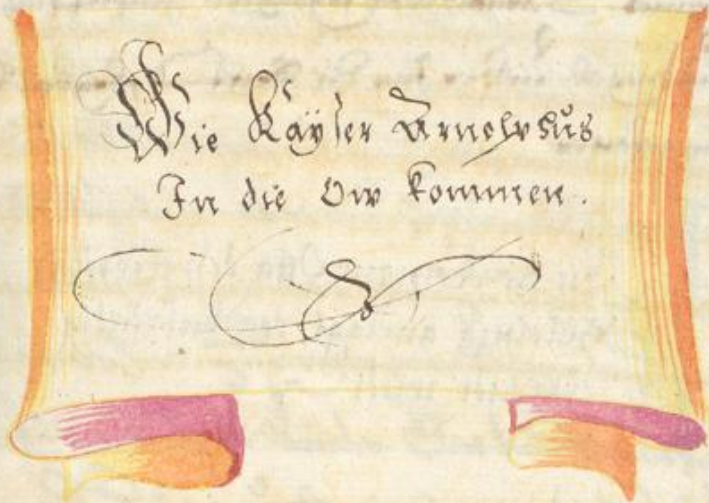 Wie Kaÿser Arnolphus
In die Ow kommen.